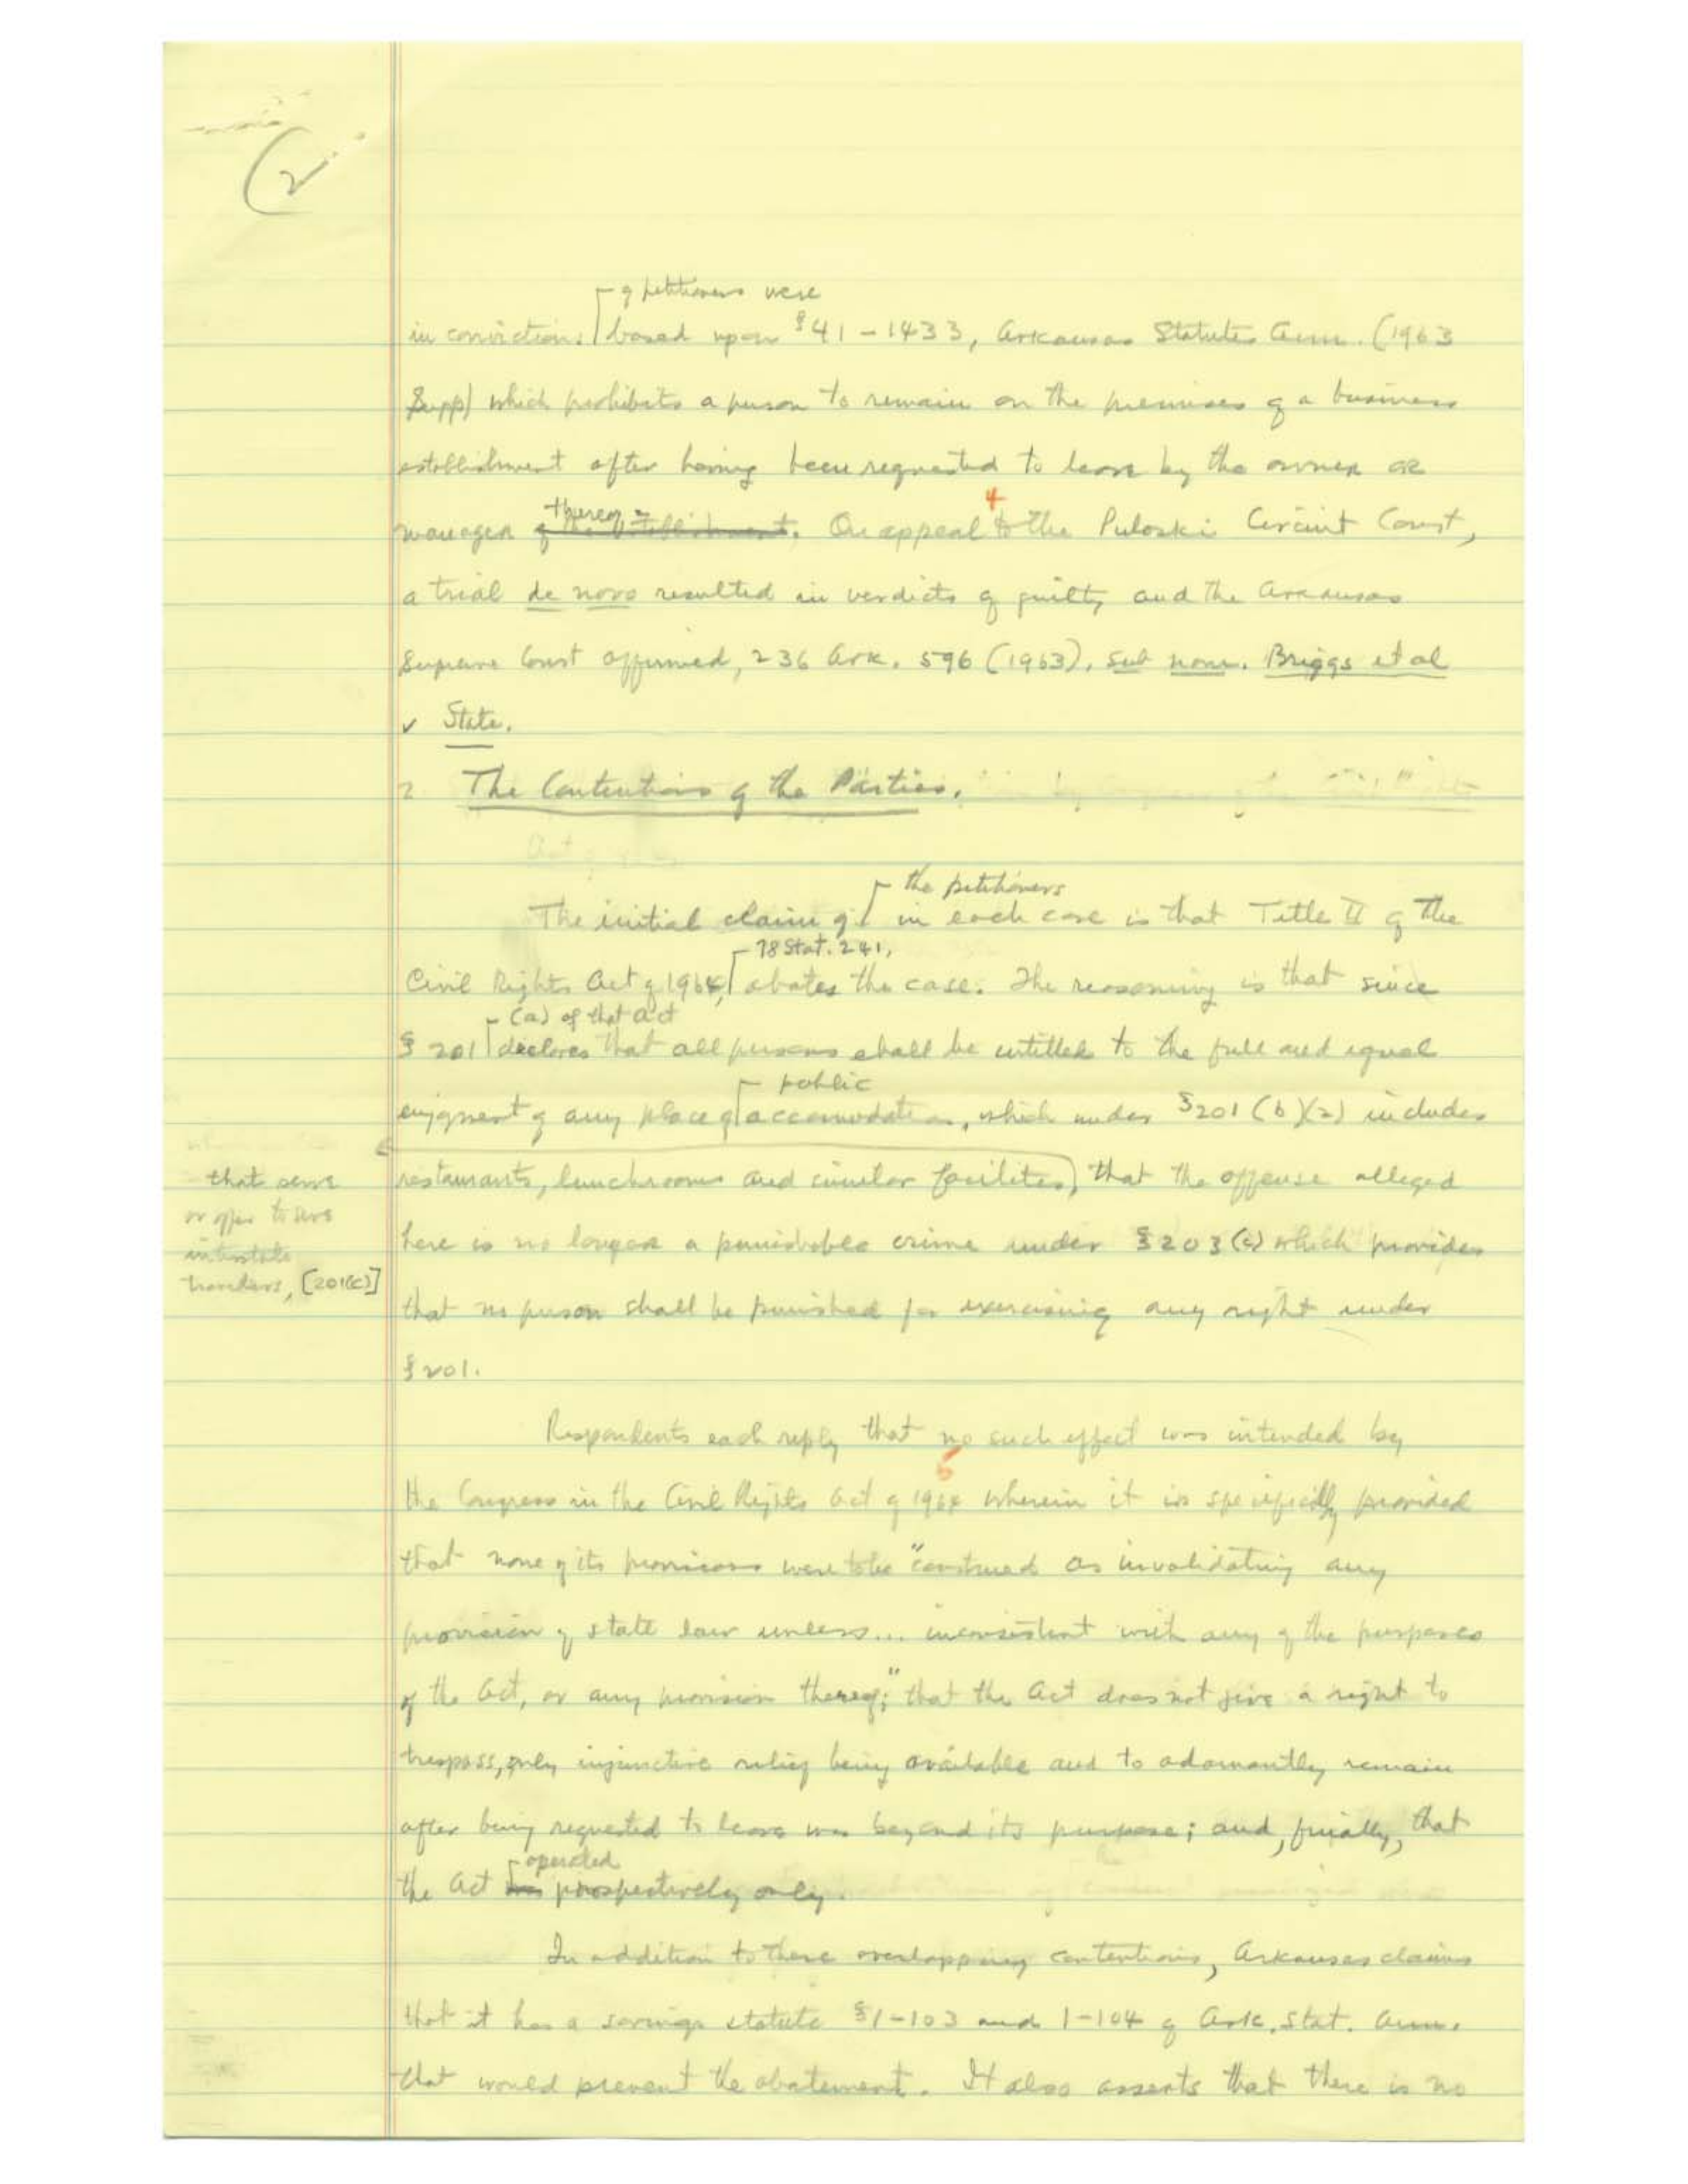 2
of petitioners were
in convictions based upon §41-1433, Arkansas Statutes Ann. (1963
Supp) which prohibits a person to remain on the premises of a business
establishment after having been requested to leave by the owner or
thereof
manager of the establishment. On appeal to the Pulaski Circuit Court,
4
a trial de novo resulted in verdicts of guilty and the Arkansas
Supreme Court affirmed, 236 Ark. 596 (1963), sub nom. Briggs et al
v State.
2 The Contentions of the Parties.
the petitioners
The initial claim of in each case is that Title II of the
78 Stat. 241,
Civil Rights Act of 1964, abates the case. The reasoning is that since
(a) of that act
§ 201 declares that all persons shall be entitled to the full and equal
public
enjoyment of any place of accomodation, which under §201 (b)(2) includes
restaurants, lunchrooms and similar facilities, that the offense alleged
that serve
or offer to serve
interstate
travelers, [201(c)]
here is no longer a punishable crime under §203(c) which provides
that no person shall be punished for exercising any right under
§201.
Respondents each reply that no such effect was intended by
5
the Congress in the Civil Rights Act of 1964 wherein it is specifically provided
that none of its provisions were to be "construed as invalidating any
provision of state law unless... inconsistent with any of the purposes
of the Act, or any provision thereof;" that the Act does not give a right to
trespass, only injunctive relief being available and to adamantly remain
after being requested to leave was beyond its purpose; and, finally, that
operated
the Act was prospectively only.
In addition to these overlapping contentions, Arkansas claims
that it has a savings statute §1-103 and 1-104 of Ark. Stat. Ann.
that would prevent the abatement. It also asserts that there is no